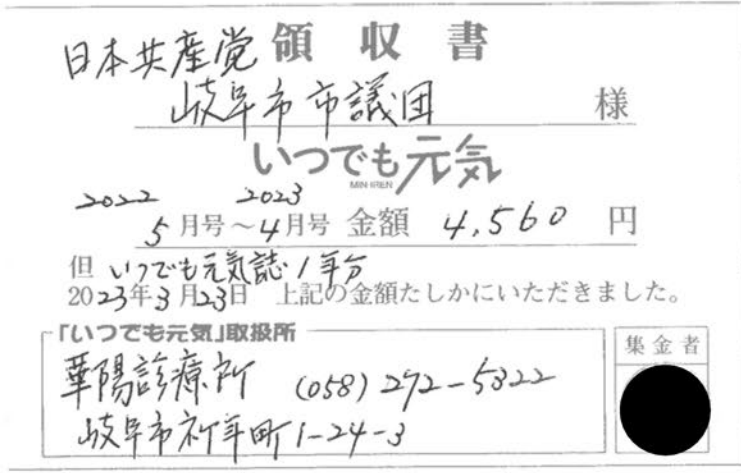 領収書
日本共産党
岐阜市市議団 様
いつでも元気
MIN-IREN
2022 2023
5月号〜4月号 金額 4,560 円
但 いつでも元気誌1年分
2023年3月23日 上記の金額たしかにいただきました。
「いつでも元気」取扱所
集金者
華陽診療所 (058)272-5322
岐阜市 1-24-3